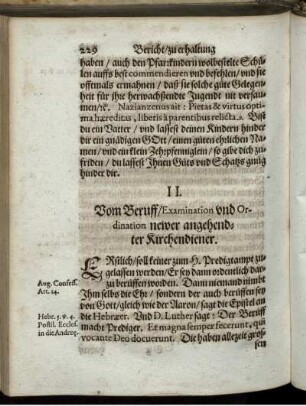 229 Bericht/zu erhaltung
haben / auch den Pfarrkindern wolbestelte Schu-
len auffs best commendieren vnd befehlen/vnd sie
offtmals ermahnen / daß sie solche gute Gelegen-
heit für ihre herwachssende Jugendt nit versau-
men/rc. Nazianzenus ait: Pietas & virtus opti-
ma hæreditas, liberis à parentibus relicta. Bist
du ein Vatter / vnd lassest deinen Kindern hinder
dir ein gnädigen GOtt / einen guten ehrlichen Na-
men/ vnd ein klein Zehrpfenniglein / so gibe dich zu-
friden / du lassest Ihnen Guts vnd Schatzs gnug
hinder dir.
II.
Vom Beruff/Examination vnd Or-
dination newer angehend-
ter Kirchendiener.
ERstlich/soll keiner zum H. Predigtampt zu-
gelassen werden/Er sey dann ordentlich dar-
zu berüffen worden. Dann niemand nimbt
Aug. Confess.
Art. 14.
Ihm selbs die Ehr / sonder der auch berüffen sey
von Gott/gleich wie der Aaron/ sagt die Epistel an
die Hebræer. Vnd D. Luther sagt: Der Beruff
Hebr. 5. v. 4.
Postil. Eccles.
in die Andreæ.
macht Prediger. Et magna semper fecerunt, qui
vocante Deo docuerunt. Die haben allzeit gros-
sen